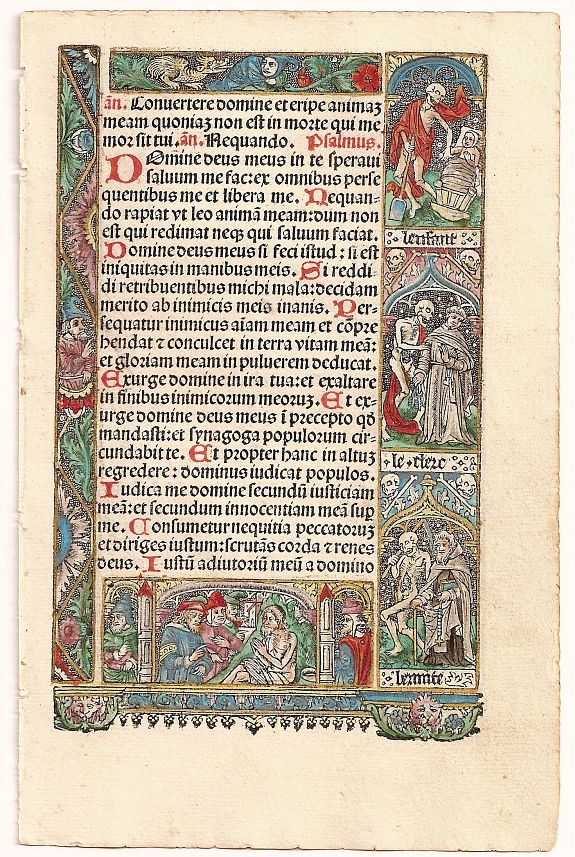 añ. Conuertere domine et eripe animaʒ
meam quoniaʒ non est in morte qui me
mor sit tui. añ. Nequando. Psalmus.
DOmine deus meus in te speraui
saluum me fac: ex omnibus perse
quentibus me et libera me. Nequan-
do rapiat vt leo animã meam: dum non
est qui redimat neqʒ qui saluum faciat.
Domine deus meus si feci istud: si est
iniquitas in manibus meis. Si reddi-
di retribuentibus michi mala: decidam
merito ab inimicis meis inanis. Per-
sequatur inimicus aĩam meam et cõpre
hendat ⁊ conculcet in terra vitam meã:
et gloriam meam in puluerem deducat.
Exurge domine in ira tua: et exaltare
in finibus inimicorum meoruʒ. Et ex-
urge domine deus meus ĩ precepto qđ
mandasti: et synagoga populorum cir-
cundabit te. Et propter hanc in altuʒ
regredere: dominus iudicat populos.
Iudica me domine secundũ iusticiam
meã: et secundum innocentiam meã sup
me. Consumetur nequitia peccatoruʒ
et diriges iustum: scrutãs corda ⁊ renes
deus. Iustũ adiutoriũ meũ a domino
lenfant
le clerc
lermite